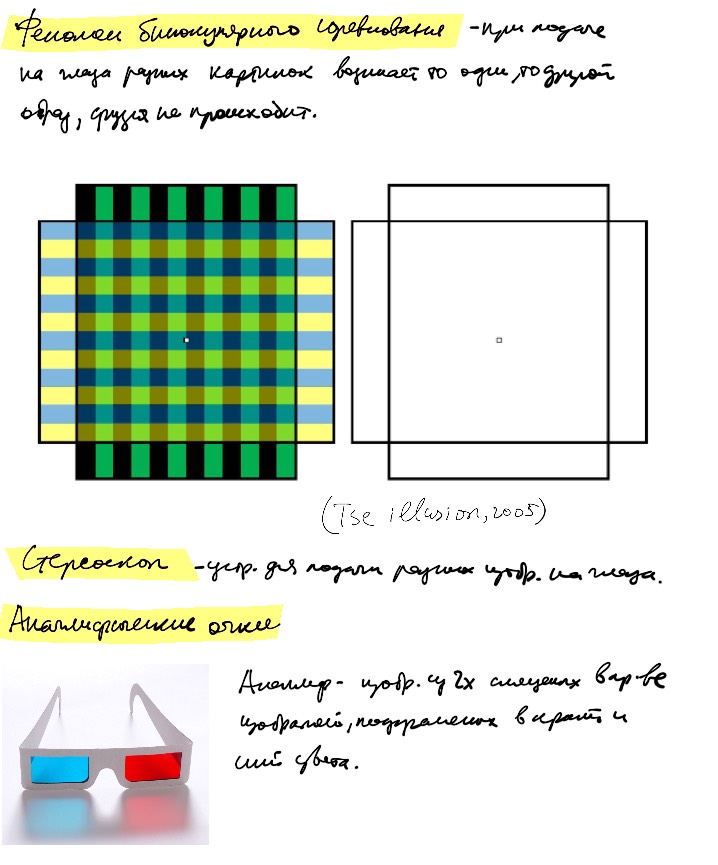 Феномен бинокулярного соревнования - при подаче
на глаза разных картинок возникает то один, то другой
образ, фузия не происходит.
(Tse illusion, 2005)
Стереоскоп - устр. для подачи разных изобр. на глаза.
Анаглифические очки
Анаглиф - изобр. из 2х смещенных в пр-ве
изображений, подкрашенных в красный и
синий цвета.